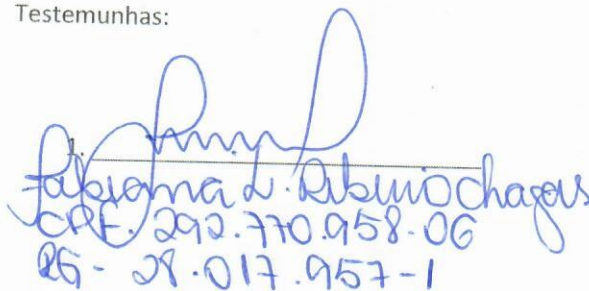 Testemunhas:
1.
Fabiana L. Ribeiro Chagas
CPF. 292.770.958-06
RG - 28.017.957-1